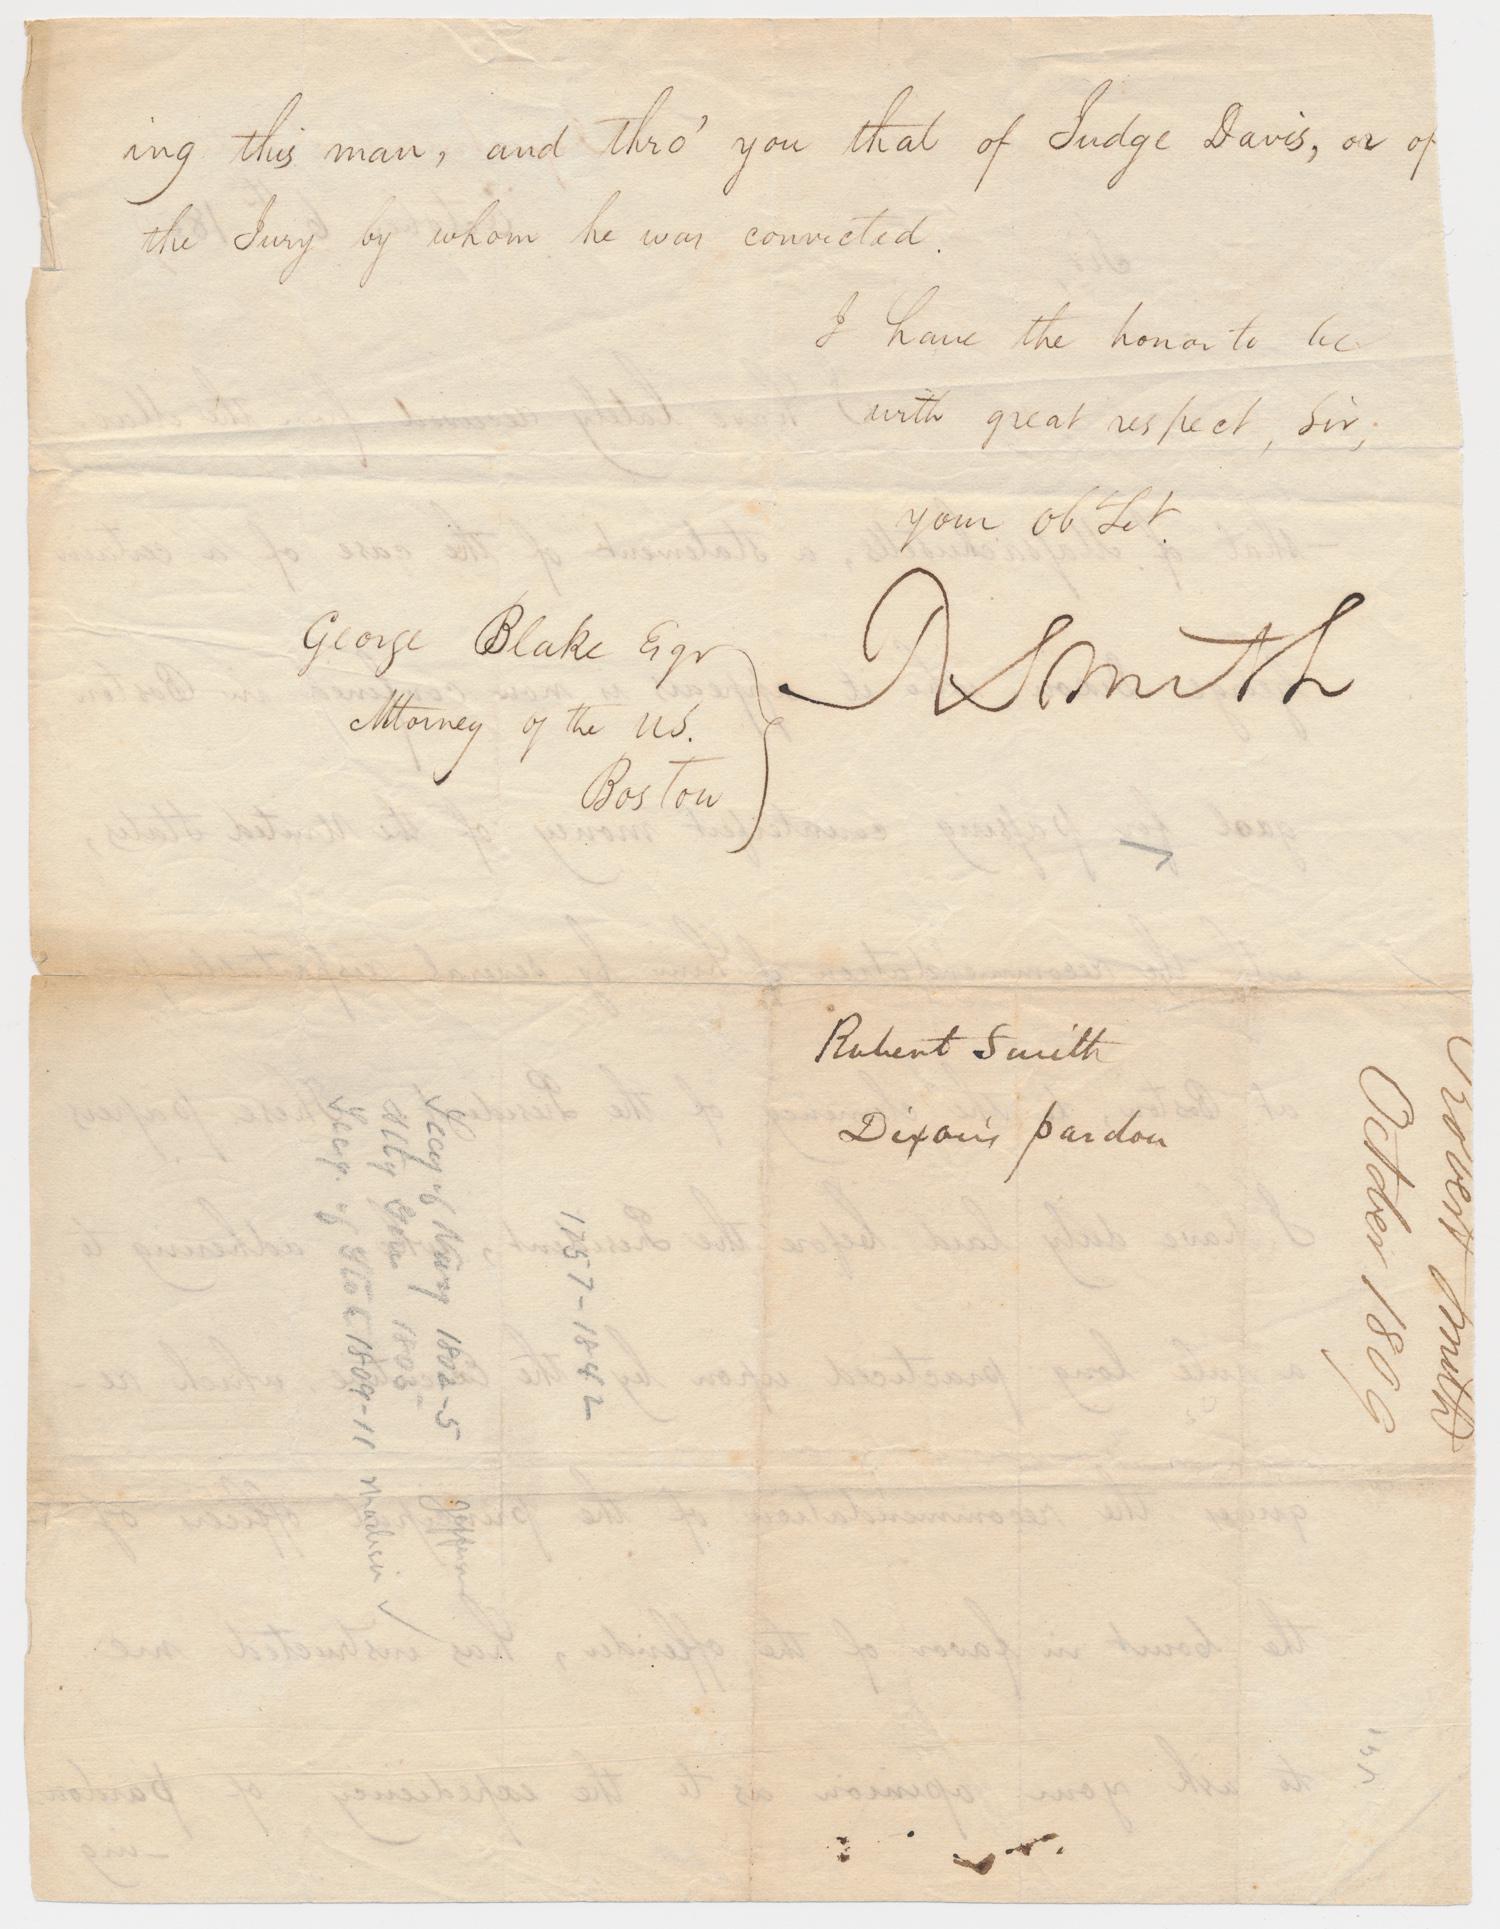 ing this man, and thro' you that of Judge Davis, or of
the Jury by whom he was convicted.
I have the honor to be
with great respect, Sir,
your Ob Set.
R Smith
George Blake Esqr
Attorney of the US.
Boston
Robert Smith
Dixon's pardon
Robert Smith
October 1806
1757-1842
Secy of Navy 1802-5 Jefferson
Atty Gen 1805
Secy. of State 1809-11 Madison